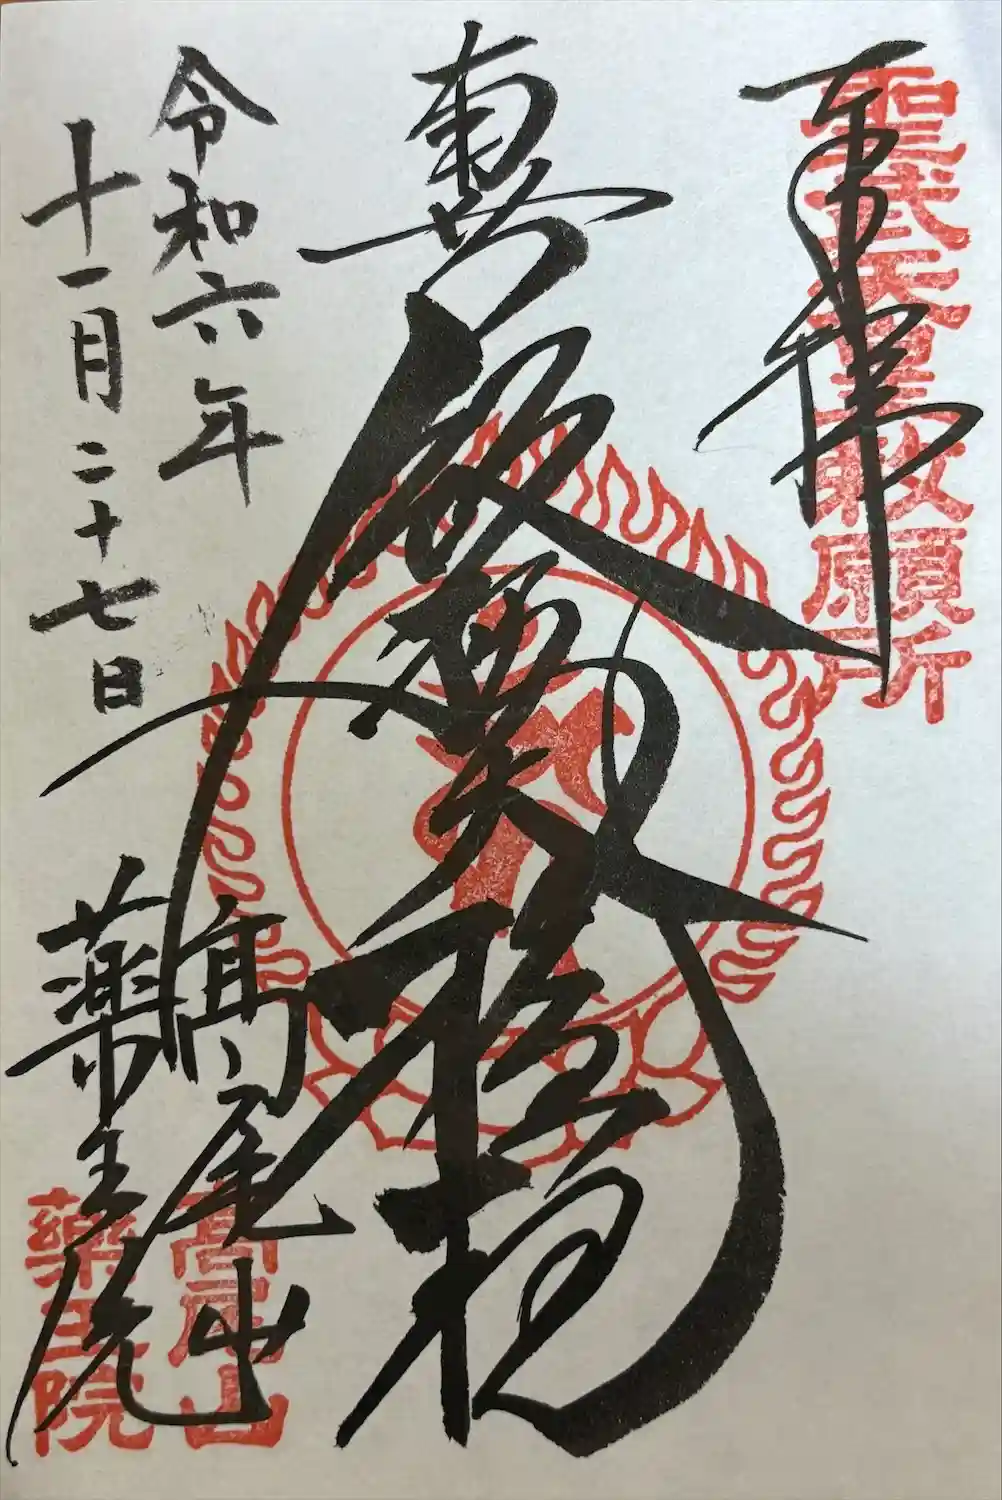 奉拝
聖武天皇敕願所
南無飯縄大権現
令和六年
十一月二十七日
高尾山
薬王院
高尾山
藥王院